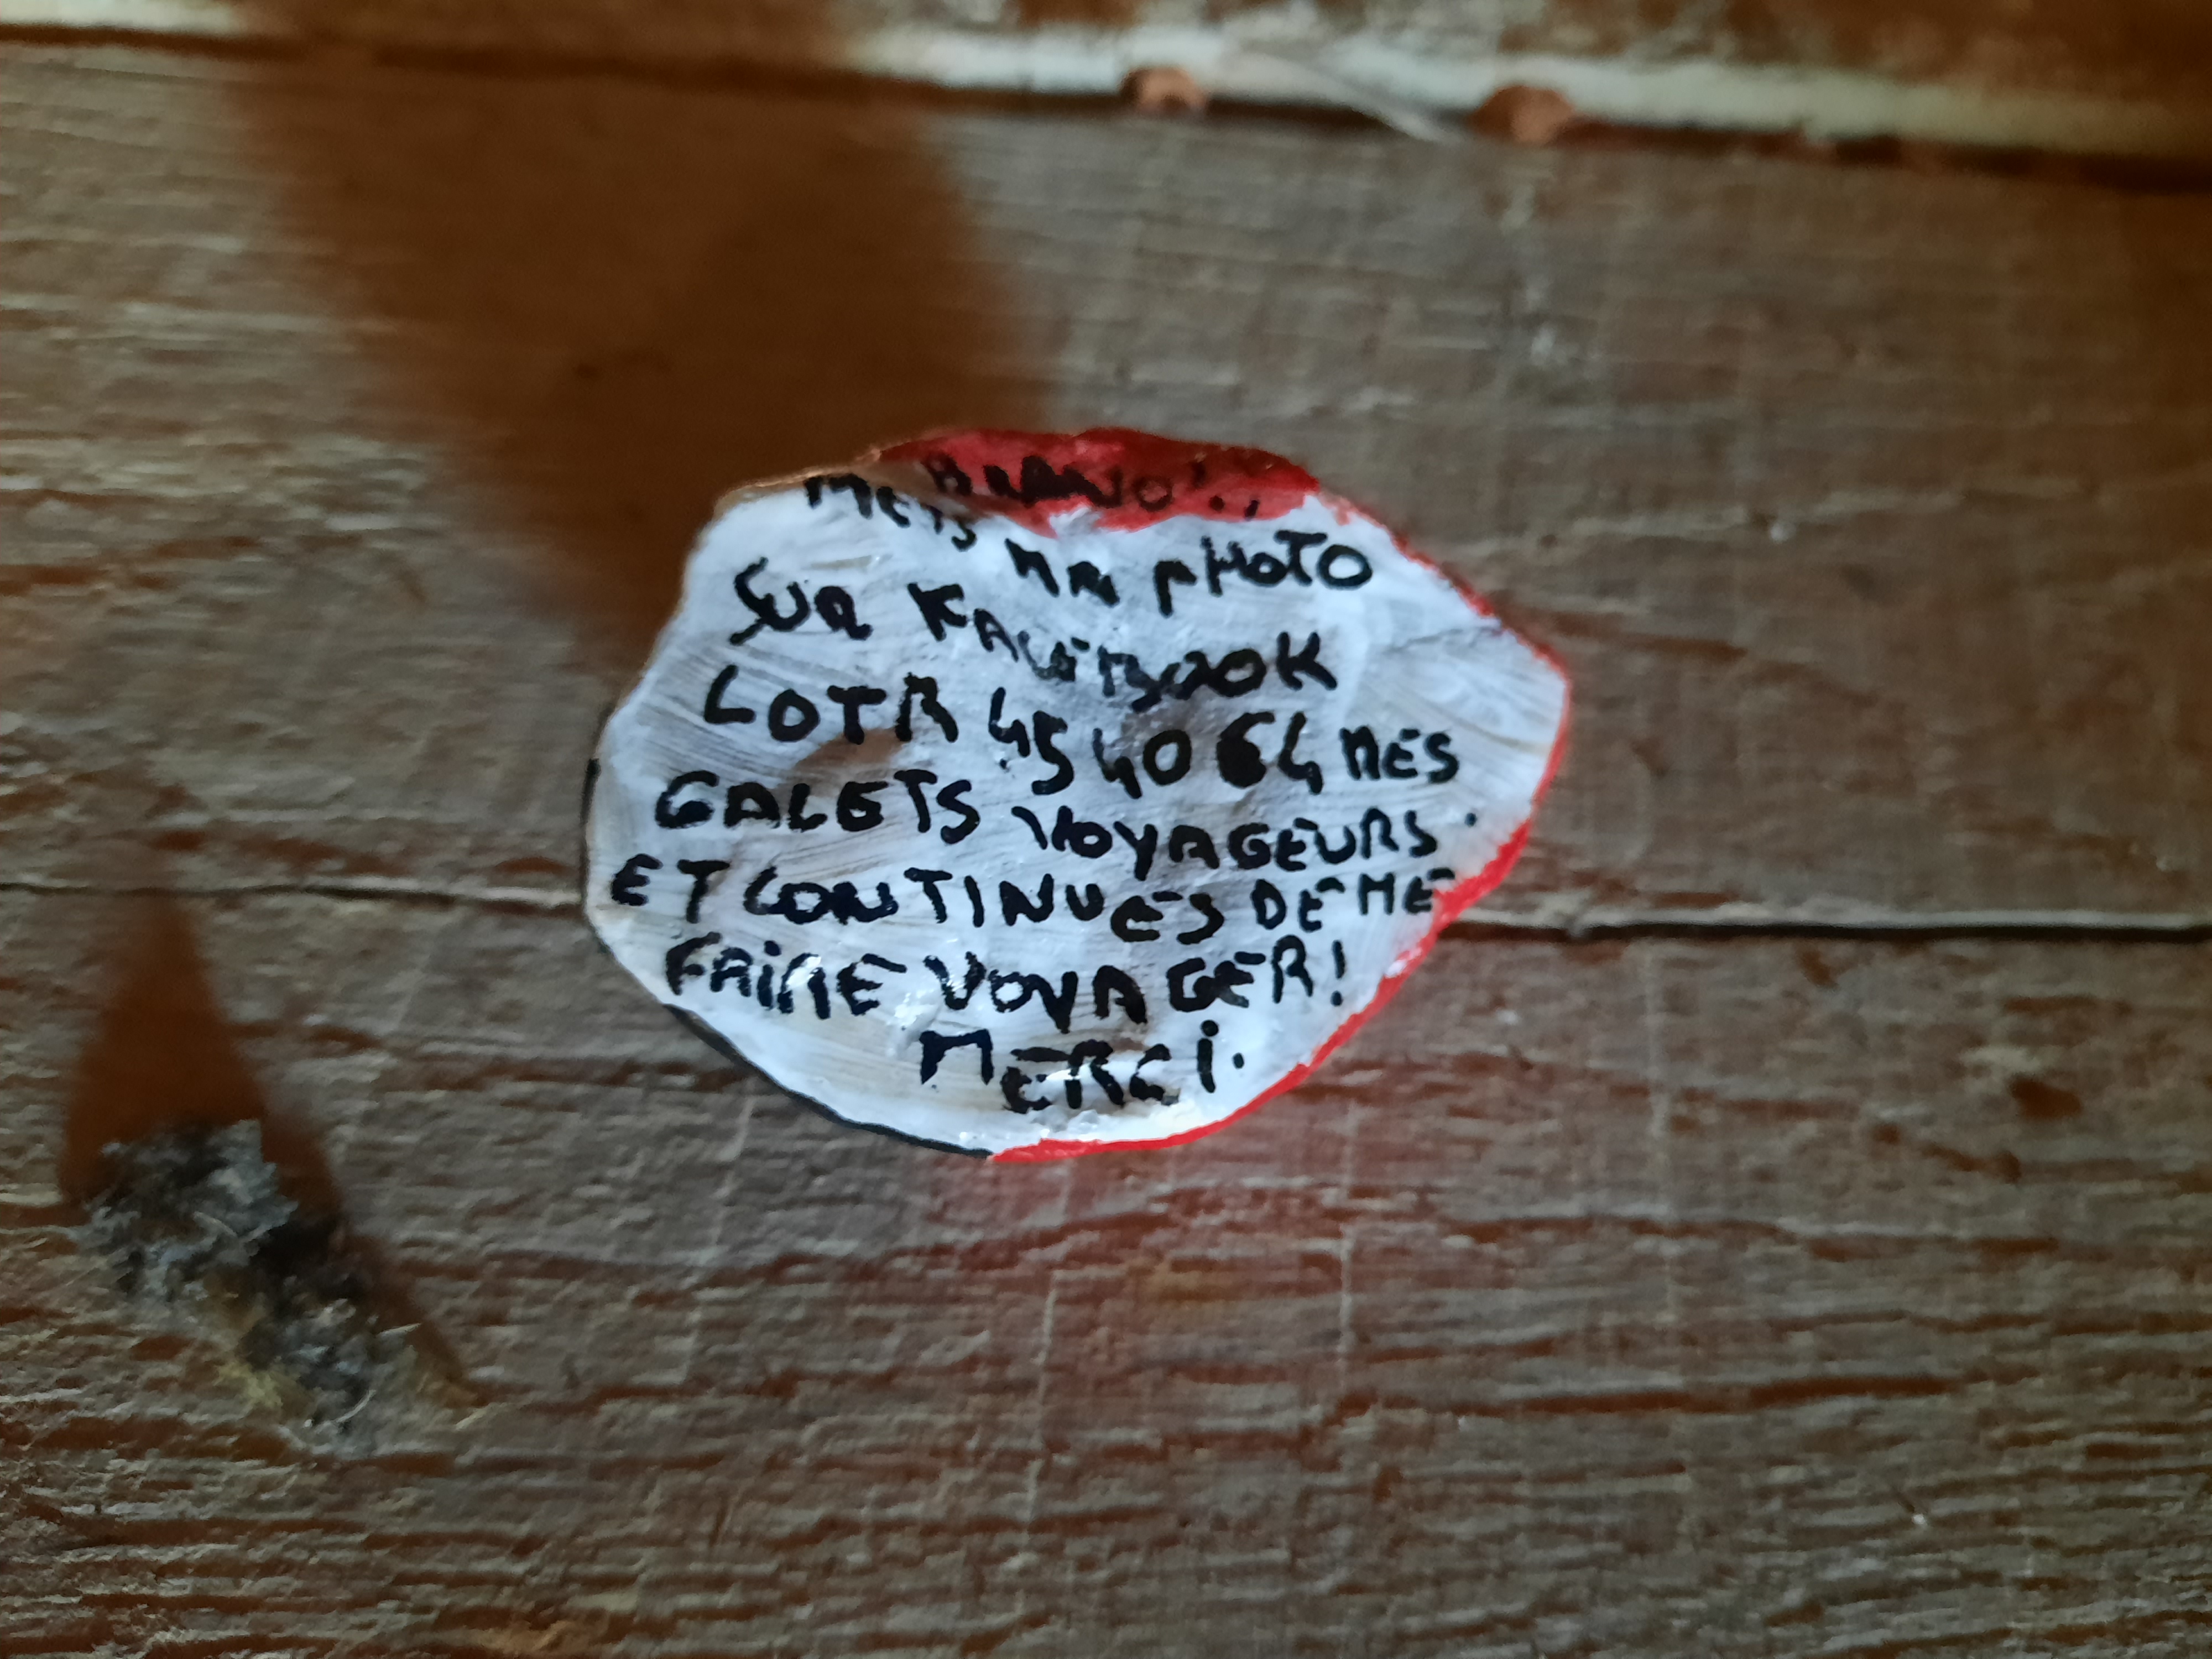 BRAVO!
METS MA PHOTO
SUR FACEBOOK
LOTR 45 40 64 MES
GALETS VOYAGEURS.
ET CONTINUES DE ME
FAIRE VOYAGER!
MERCI.